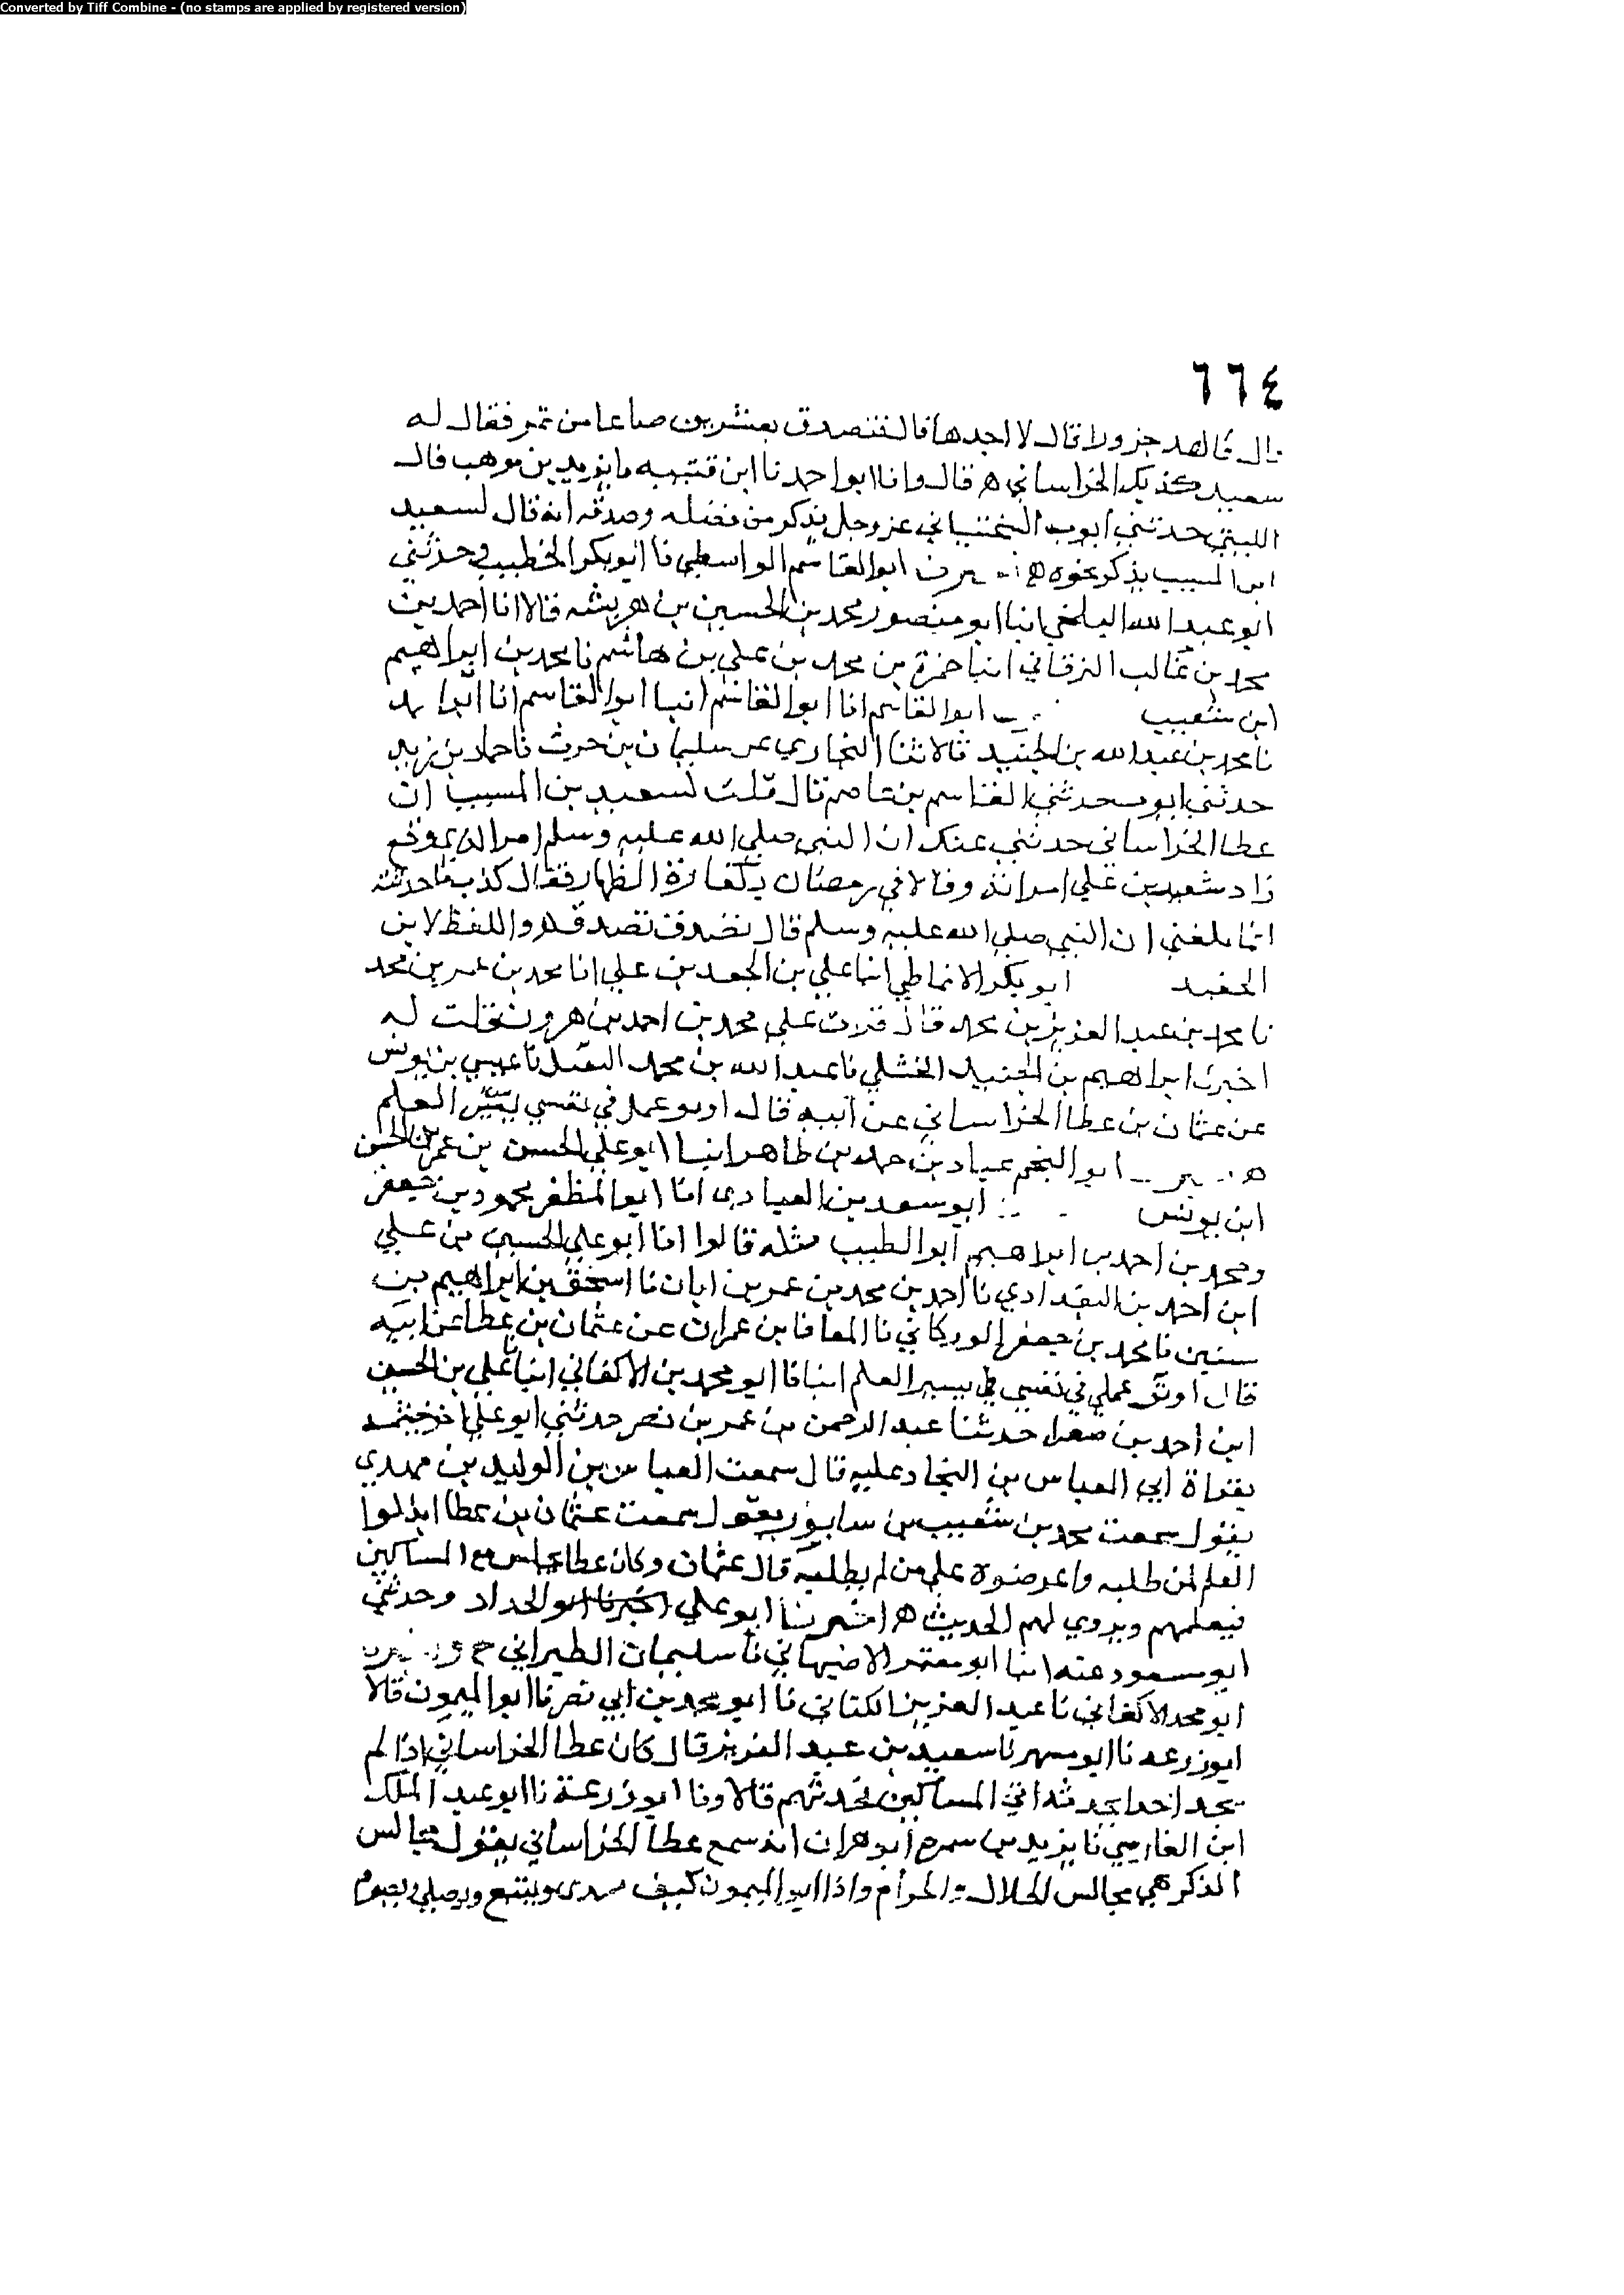 Converted by Tiff Combine - (no stamps are applied by registered version)
٦٦٤
قال فاهد جزورا قال لا اجدها قال فتصدق بعشرين صاعا من تمر فقال له
سعيد كذبك الخراساني ه قال وانا ابو احمد نا ابن قتيبه نا يزيد بن موهب قال
الليثي حدثني ايوب السختياني عز وجل يذكر من فضله وصدقه انه قال لسعيد
ابن المسيب يذكر نحوه ه ابو القاسم الواسطي نا ابو بكر الخطيب وحدثني
ابو عبد الله البلخي انبا ابو منصور محمد بن الحسين بن هريشه قالا انا احمد بن
محمد بن غالب البرقاني انبا حمزة بن محمد بن علي بن هاشم نا محمد بن ابراهيم
ابن شعيب ابو القاسم انا ابو القاسم انبا ابو القاسم انا ابو
نا محمد بن عبد الله بن الجنيد قالا ثنا البخاري عن سليمان بن حرث نا حماد بن زيد
حدثني ايوب حدثني القاسم بن عاصم قال قلت لسعيد بن المسيب ان
عطا الخراساني حدثني عنك ان النبي صلي الله عليه وسلم امر الذي وقع
زاد شعيب علي امراته وقالا في رمضان بكفارة الظهار فقال كذب ما حدثته
انما بلغني ان النبي صلي الله عليه وسلم قال تصدق تصدق واللفظ لابن
الجنيد ابو بكر الانماطي انبا علي بن الجعد بن علي انا محمد بن عمر بن محمد
نا محمد بن عبد العزيز بن محمد قال قرات علي محمد بن احمد بن هرون قلت له
اخبرك ابراهيم بن الجنيد الختلي نا عبد الله بن محمد النفيلي نا عيسي بن يونس
عن عثمان بن عطا الخراساني عن ابيه قال اوثق عملي في نفسي نشر العلم
ه ابو النجم عباد بن حمد بن طاهر انبا ابو علي الحسن بن عمر بن الحسن
ابن يونس ابو سعد بن العبادي انا ابو المظفر محمود بن جعفر
ومحمد بن احمد بن ابراهيم ابو الطيب مثله قالوا انا ابو علي الحسين بن علي
ابن احمد بن البغدادي نا احمد بن محمد بن عمر بن ابان نا اسحق بن ابراهيم بن
سنين نا محمد بن جعفر الوركاني نا المعافا بن عمران عن عثمان بن عطا عن ابيه
قال اوثق عملي في نفسي العلم انبانا ابو محمد بن الاكفاني انبا علي بن الحسين
ابن احمد بن صصرا حدثنا عبد الرحمن بن عمر بن نصر حدثني ابو علي
بقراة ابي العباس بن النجاد عليه قال سمعت العباس بن الوليد بن مهدي
يقول سمعت محمد بن شعيب بن سابور يقول سمعت عثمان بن عطا ابذلوا
العلم لمن طلبه واعرضوه علي من لم يطلبه قال عثمان وكان عطا يجلس مع المساكين
فيعلمهم ويروي لهم الحديث ه اخبرنا ابو علي الحداد وحدثني
ابو مسعود عنه انبا ابو معمر الاصبهاني نا سليمان الطبراني ح
ابو محمد الاكفاني نا عبد العزيز الكتاني نا ابو محمد بن ابي نصر نا ابو الميمون قالا
ابو زرعه نا ابو مسهر نا سعيد بن عبد العزيز قال كان عطا الخراساني اذا لم
يجد احدا يحدثه اتي المساكين فحدثهم قالا ونا ابو زرعة نا ابو عبد الملك
ابن الفارسي نا يزيد بن سمرة ابو هزان انه سمع عطا الخراساني يقول مجالس
الذكر هي مجالس الحلال والحرام وزاد ابو الميمون كيف ويبتع ويصلي ويصوم